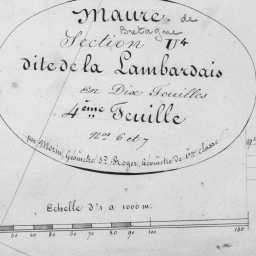 Maure de
Bretagne
Section U.
dite de la Lambardais
en Dix Feuilles
4ème Feuille
Nos 6 et 7
par Morin, Géomètre Sr. Roger, Géomètre de 1ère classe
Echelle d'1 a 1000 m.
10 20 30 40 50 60 70 80 90 100 150